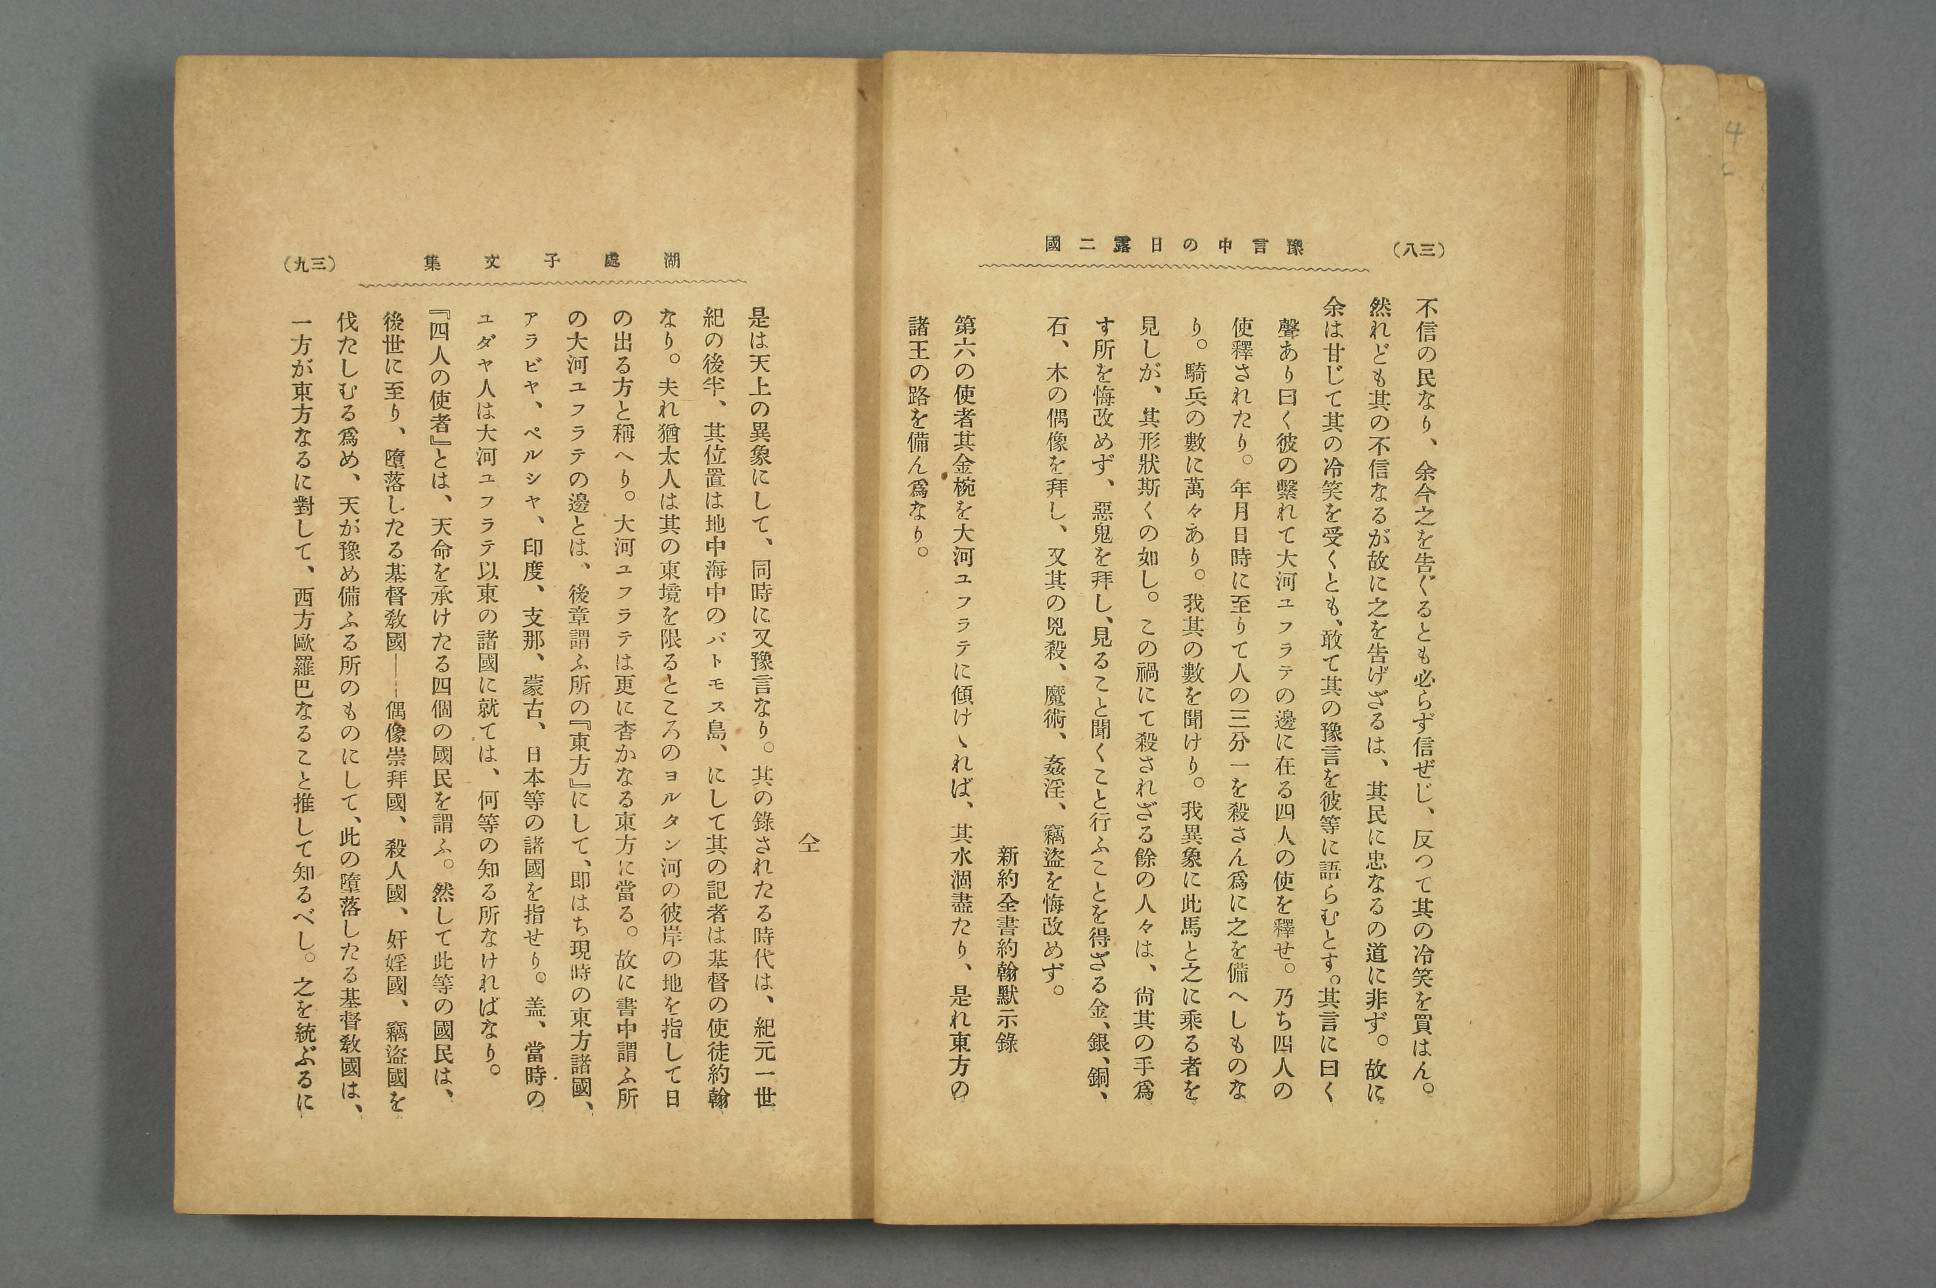 豫言中の日露二國
(三八)
不信の民なり、余今之を告ぐるとも必らず信ぜじ、反つて其の冷笑を買はん。
然れども其の不信なるが故に之を告げざるは、其民に忠なるの道に非ず。故に
余は甘じて其の冷笑を受くとも、敢て其の豫言を彼等に語らむとす。其言に曰く
聲あり曰く彼の繫れて大河ユフラテの邊に在る四人の使を釋せ。乃ち四人の
使釋されたり。年月日時に至りて人の三分一を殺さん爲に之を備へしものな
り。騎兵の數に萬々あり。我其の數を聞けり。我異象に此馬と之に乘る者を
見しが、其形狀斯くの如し。この禍にて殺されざる餘の人々は、尙其の手爲
す所を悔改めず、惡鬼を拜し、見ること聞くこと行ふことを得ざる金、銀、銅、
石、木の偶像を拜し、又其の兇殺、魔術、姦淫、竊盜を悔改めず。
新約全書約翰默示錄
第六の使者其金椀を大河ユフラテに傾けゝれば、其水涸盡たり、是れ東方の
諸王の路を備ん爲なり。
湖處子文集
(三九)
仝
是は天上の異象にして、同時に又豫言なり。其の錄されたる時代は、紀元一世
紀の後半、其位置は地中海中のパトモス島、にして其の記者は基督の使徒約翰
なり。夫れ猶太人は其の東境を限るところのヨルダン河の彼岸の地を指して日
の出る方と稱へり。大河ユフラテは更に杳かなる東方に當る。故に書中謂ふ所
の大河ユフラテの邊とは、後章謂ふ所の『東方』にして、即はち現時の東方諸國、
アラビヤ、ペルシヤ、印度、支那、蒙古、日本等の諸國を指せり。盖、當時の
ユダヤ人は大河ユフラテ以東の諸國に就ては、何等の知る所なければなり。
『四人の使者』とは、天命を承けたる四個の國民を謂ふ。然して此等の國民は、
後世に至り、墮落したる基督敎國――偶像崇拜國、殺人國、奸婬國、竊盜國を
伐たしむる爲め、天が豫め備ふる所のものにして、此の墮落したる基督敎國は、
一方が東方なるに對して、西方歐羅巴なること推して知るべし。之を統ぶるに